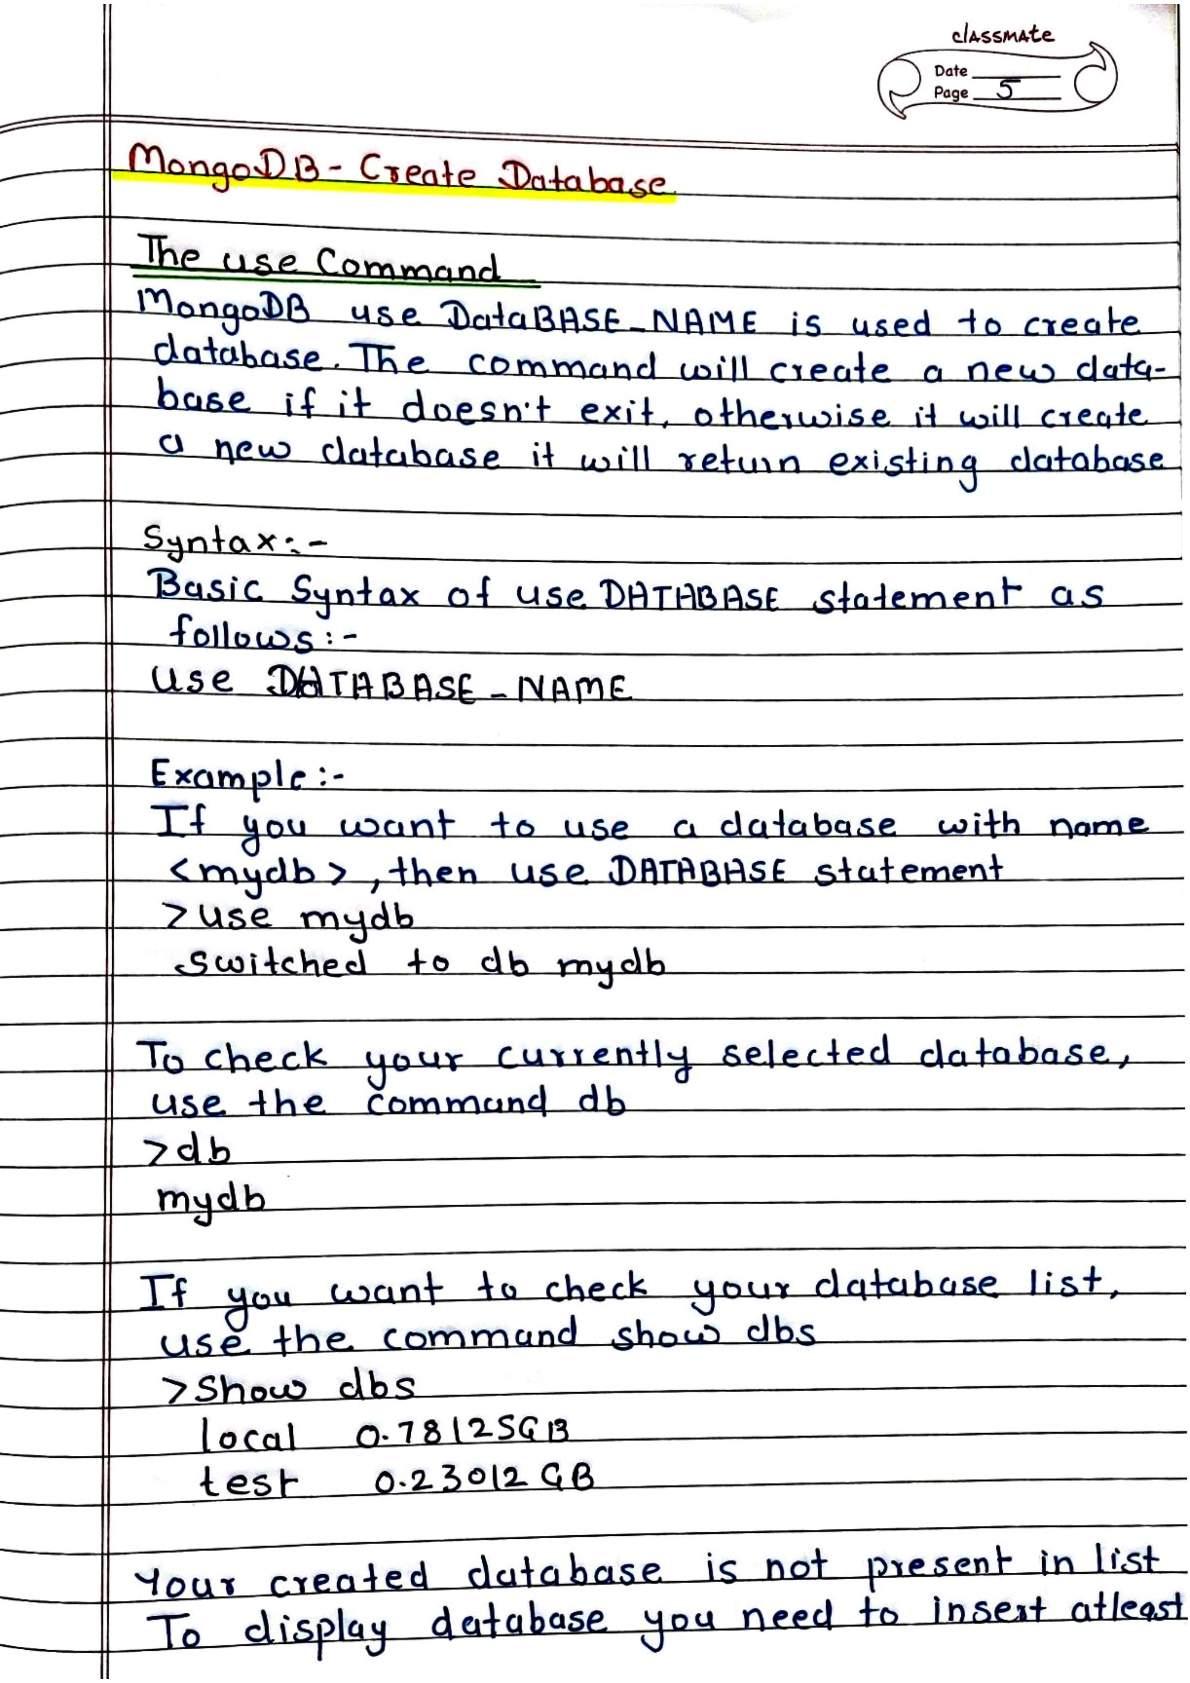 classmate
Date
Page 5
MongoDB - Create Database
The use Command
MongoDB use DataBASE_NAME is used to create
database. The command will create a new data-
base if it doesn't exit, otherwise it will create
a new database it will return existing database
Syntax:-
Basic Syntax of use DATABASE statement as
follows:-
use DATABASE_NAME
Example:-
If you want to use a database with name
<mydb>, then use DATABASE statement
>use mydb
switched to db mydb
To check your currently selected database,
use the command db
>db
mydb
If you want to check your database list,
use the command show dbs
>Show dbs
local 0.78125GB
test 0.23012GB
Your created database is not present in list
To display database you need to insert atleast